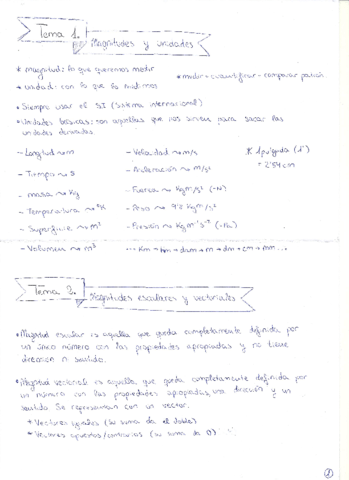 Tema 1.
Magnitudes y unidades
* magnitud: lo que queremos medir
* medir = cuantificar - comparar patrón
* unidad: con lo que lo medimos
* Siempre usar el SI (sistema internacional)
* Unidades básicas: son aquellas que nos sirven para sacar las
unidades derivadas.
- Longitud → m
- Velocidad → m/s
* 1 pulgada (1")
= 2'54 cm
- Tiempo → s
- Aceleración → m/s²
- masa → Kg
- Fuerza → Kg m/s² (=N)
- Temperatura → ºK
- Peso → 9'8 Kg m/s²
- Superficie → m²
- Presión → Kg m⁻¹ s⁻² (=Pa)
- Volumen → m³
... Km - hm - dam - m - dm - cm - mm ...
Tema 2.
Magnitudes escalares y vectoriales
* Magnitud escalar es aquella que queda completamente definida por
un único número con las propiedades apropiadas y no tiene
dirección ni sentido.
* Magnitud vectorial es aquella que queda completamente definida por
un número con las propiedades apropiadas, una dirección y un
sentido. Se representan con un vector.
+ Vectores iguales (su suma da el doble)
+ Vectores opuestos/contrarios (su suma da 0)